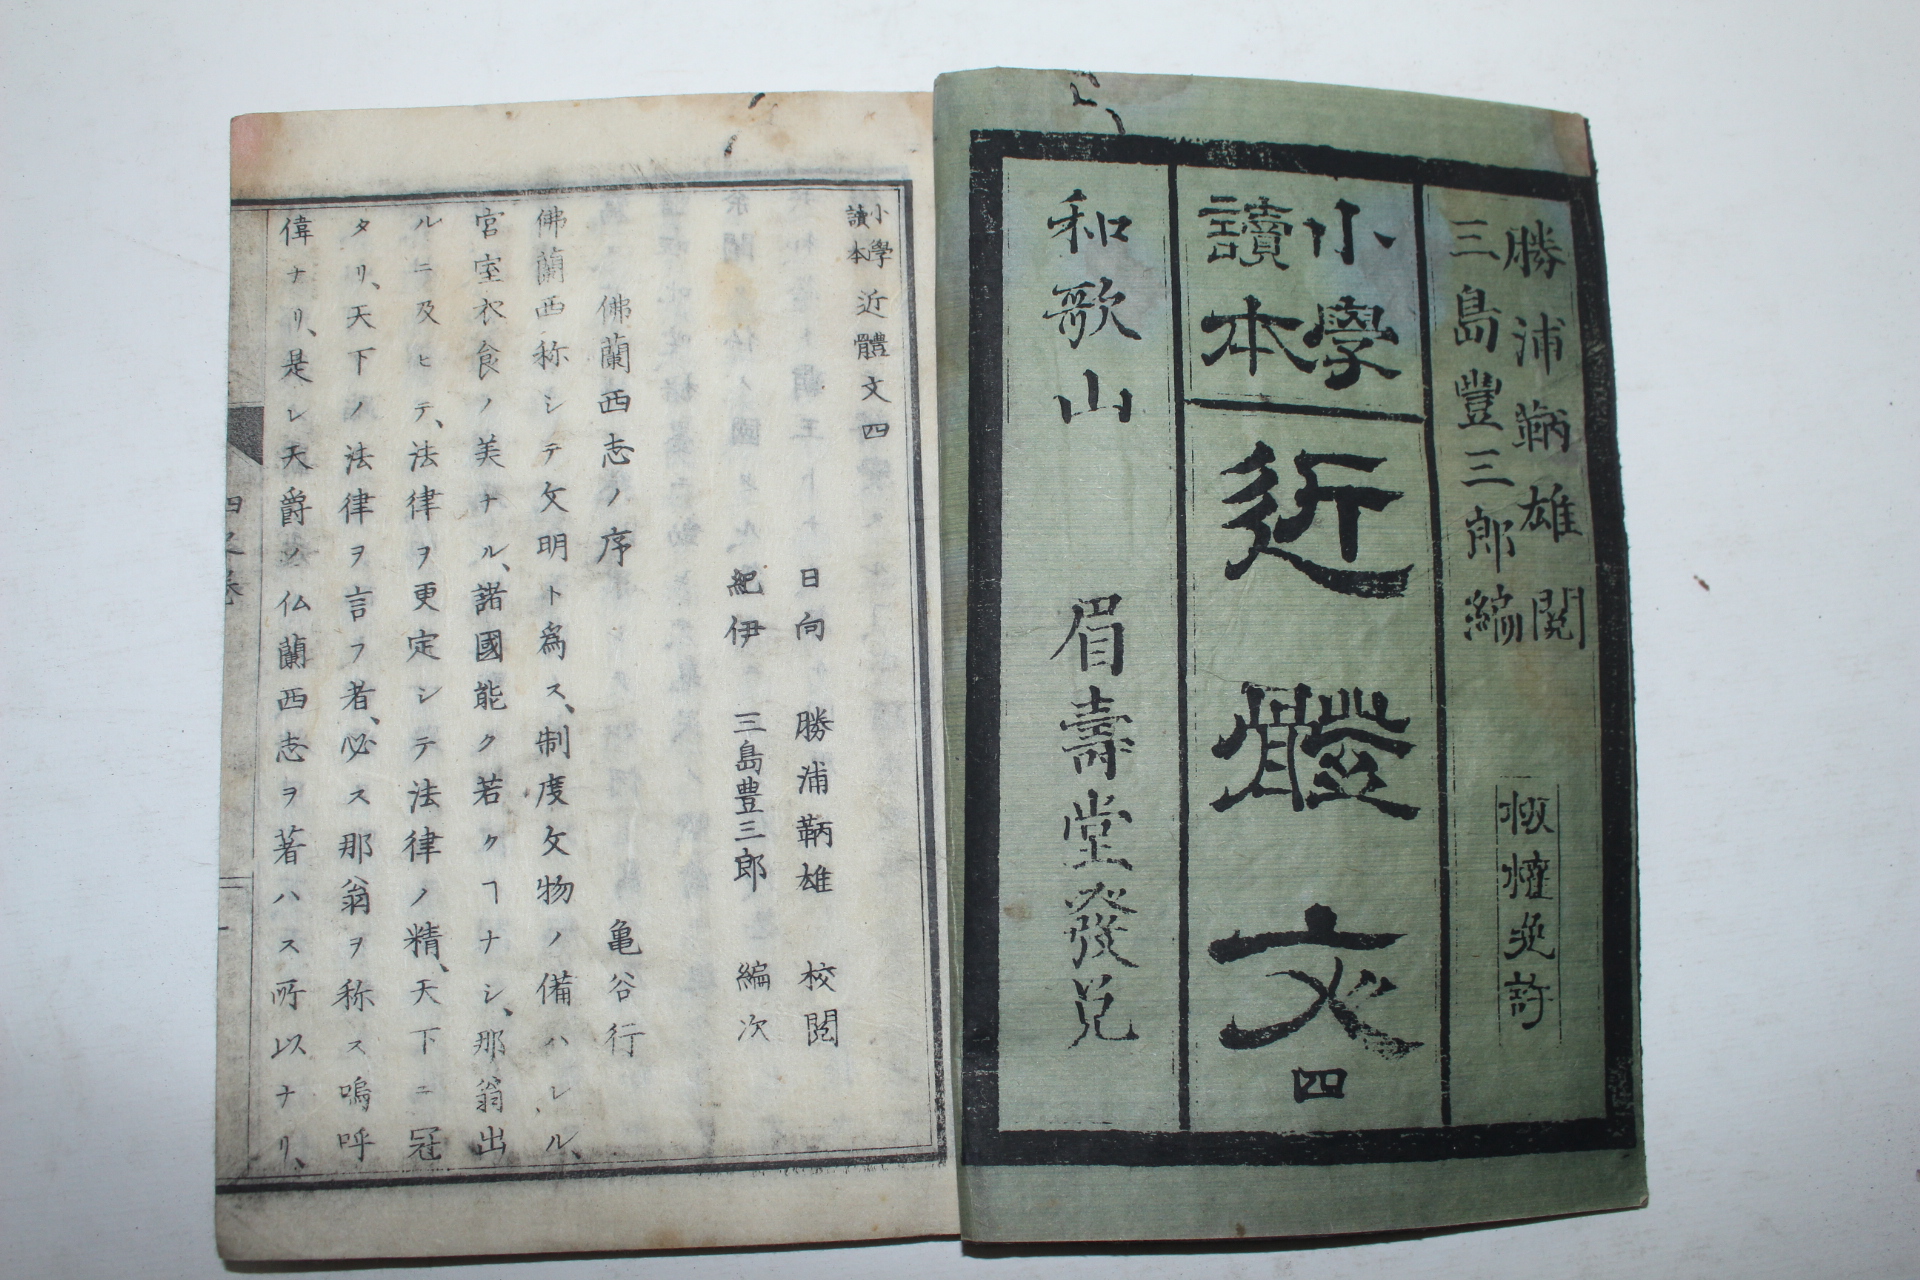 勝浦鞆雄閲
三島豐三郎編
板權免許
小學
讀本
近體文
四
和歌山 眉壽堂發兌
小學
讀本
近體文四
日向 勝浦鞆雄 校閲
紀伊 三島豊三郎 編次
佛蘭西志ノ序 亀谷行
佛蘭西称シテ文明ト為ス、制度文物ノ備ハレル、
宮室衣食ノ美ナル、諸國能ク若クヿナシ、那翁出
ルニ及ヒテ、法律ヲ更定シテ法律ノ精、天下ニ冠
タリ、天下ノ法律ヲ言フ者、必ス那翁ヲ称ス嗚呼
偉ナリ、是レ天爵ノ仏蘭西志ヲ著ハス所以ナリ、
四之卷